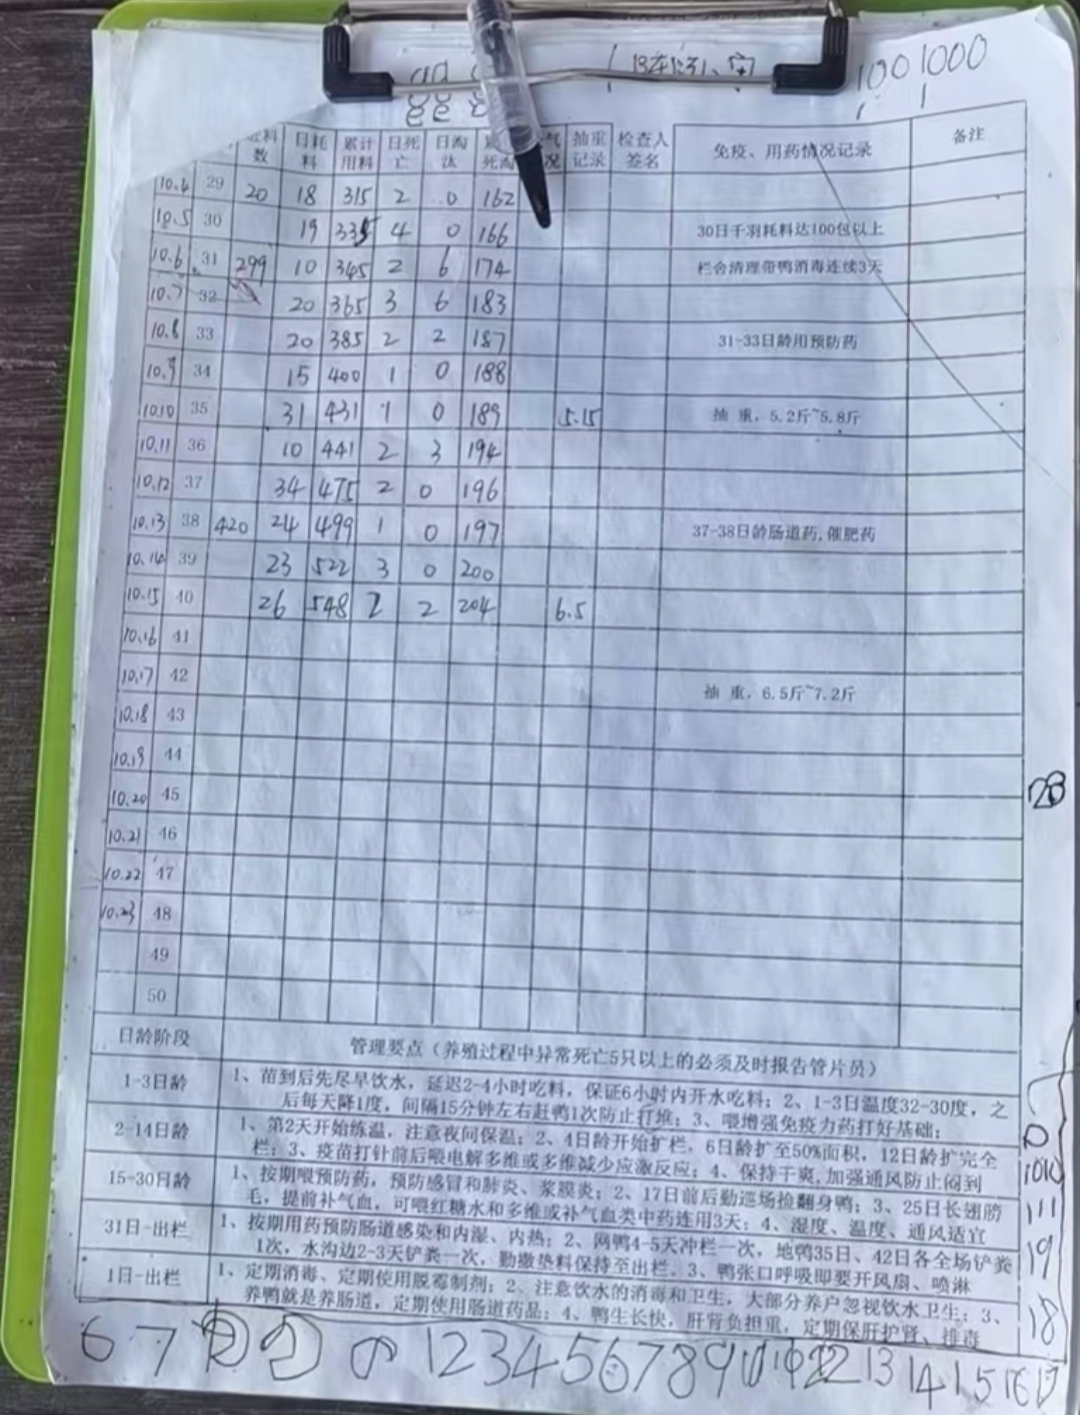 100 1000
料数 日耗料 累计用料 日死亡 日淘汰 死淘 气况 抽重记录 检查人签名 免疫、用药情况记录 备注
10.4 29 20 18 315 2 0 162
10.5 30 19 335 4 0 166 30日千羽耗料达100包以上
10.6 31 299 10 345 2 6 174 栏舍清理带鸭消毒连续3天
10.7 32 20 365 3 6 183
10.8 33 20 385 2 2 187 31-33日龄用预防药
10.9 34 15 400 1 0 188
10.10 35 31 431 1 0 189 5.15 抽 重，5.2斤~5.8斤
10.11 36 10 441 2 3 194
10.12 37 34 475 2 0 196
10.13 38 420 24 499 1 0 197 37-38日龄肠道药,催肥药
10.14 39 23 522 3 0 200
10.15 40 26 548 2 2 204 6.5
10.16 41
10.17 42 抽 重，6.5斤~7.2斤
10.18 43
10.19 44
10.20 45
10.21 46
10.22 47
10.23 48
49
50
日龄阶段 管理要点（养殖过程中异常死亡5只以上的必须及时报告管片员）
1-3日龄 1、苗到后先尽早饮水，延迟2-4小时吃料，保证6小时内开水吃料；2、1-3日温度32-30度，之
后每天降1度，间隔15分钟左右赶鸭1次防止打堆；3、喂增强免疫力药打好基础；
2-14日龄 1、第2天开始练温，注意夜间保温；2、4日龄开始扩栏，6日龄扩至50%面积，12日龄扩完全
栏；3、疫苗打针前后喂电解多维或多维减少应激反应；4、保持干爽,加强通风防止闷到
15-30日龄 1、按期喂预防药，预防感冒和肺炎、浆膜炎；2、17日前后勤巡场捡翻身鸭；3、25日长翅膀
毛，提前补气血，可喂红糖水和多维或补气血类中药连用3天；4、湿度、温度、通风适宜
31日-出栏 1、按期用药预防肠道感染和内湿、内热；2、网鸭4-5天冲栏一次，地鸭35日、42日各全场铲粪
1次，水沟边2-3天铲粪一次，勤撒垫料保持至出栏。3、鸭张口呼吸即要开风扇、喷淋
1日-出栏 1、定期消毒、定期使用脱霉制剂；2、注意饮水的消毒和卫生，大部分养户忽视饮水卫生；3、
养鸭就是养肠道，定期使用肠道药品；4、鸭生长快，肝肾负担重，定期保肝护肾、排毒
111
19
18
6 7
1 2 3 4 5 6 7 8 9 10 13 14 15 16 17